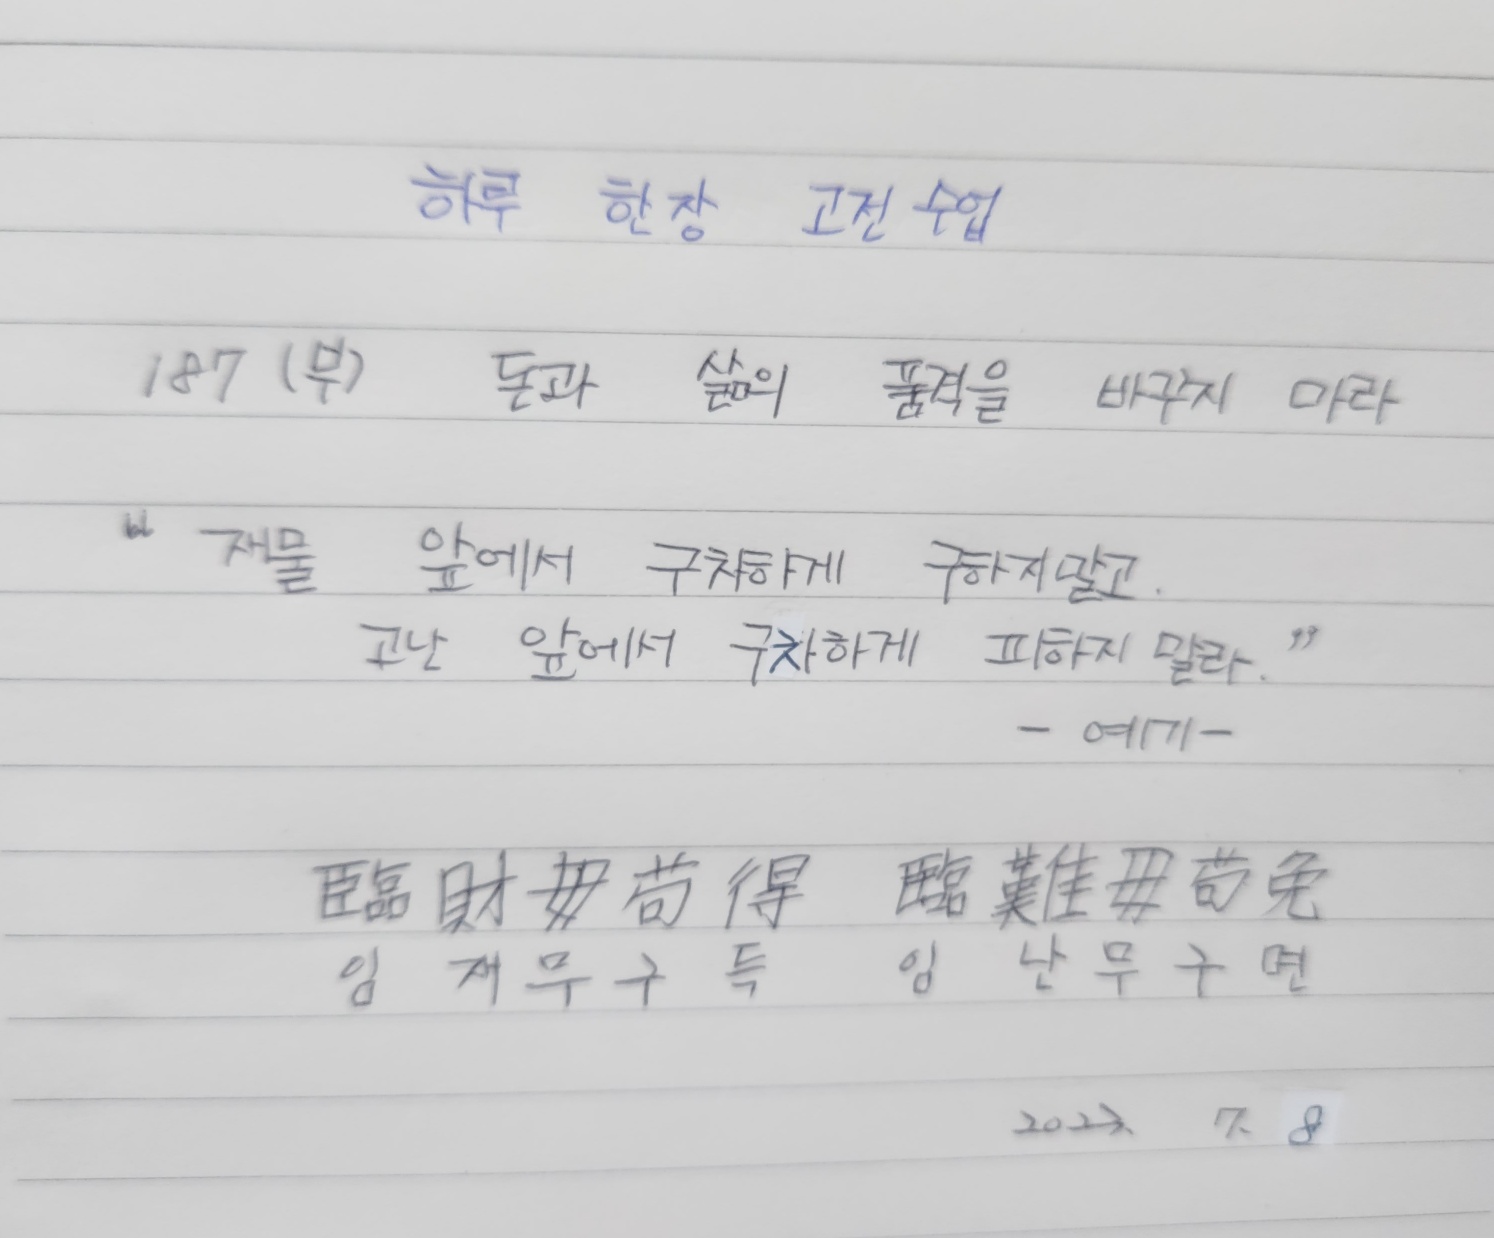 하루 한장 고전수업
187 (부) 돈과 삶의 품격을 바꾸지 마라
“재물 앞에서 구차하게 구하지말고.
고난 앞에서 구차하게 피하지말라.”
- 예기-
臨財毋苟得 臨難毋苟免
임재무구득 임난무구면
7. 8